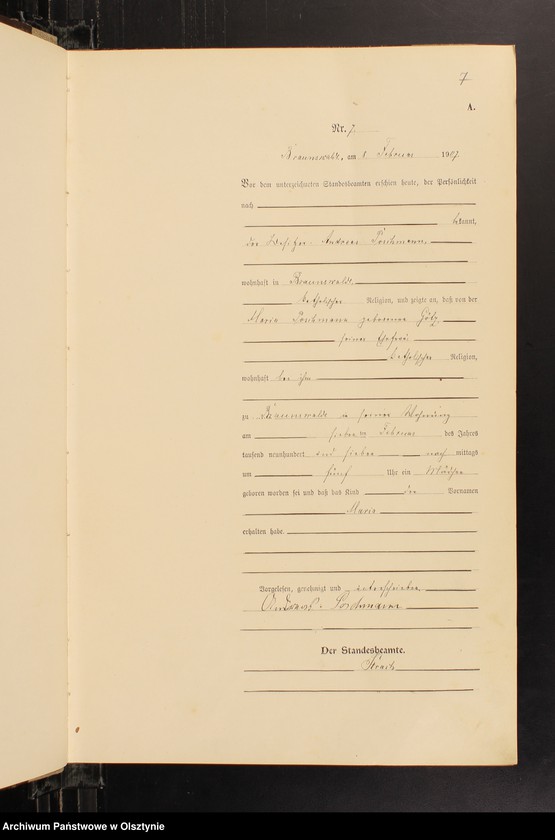 7
A.
Nr. 7.
Braunswalde, am 8. Februar 1907.
Vor dem unterzeichneten Standesbeamten erschien heute, der Persönlichkeit
nach
bekannt,
der Besitzer Andreas
wohnhaft in Braunswalde
katholischer Religion, und zeigte an, daß von der
Maria geborenen
seiner Ehefrau
katholischer Religion,
wohnhaft bei ihm
zu Braunswalde in seiner Wohnung
am siebenten Februar des Jahres
tausend neunhundert und sieben nach mittags
um fünf Uhr ein Mädchen
geboren worden sei und daß das Kind den Vornamen
Maria
erhalten habe.
Vorgelesen, genehmigt und unterschrieben
Andreas
Der Standesbeamte.
Archiwum Państwowe w Olsztynie